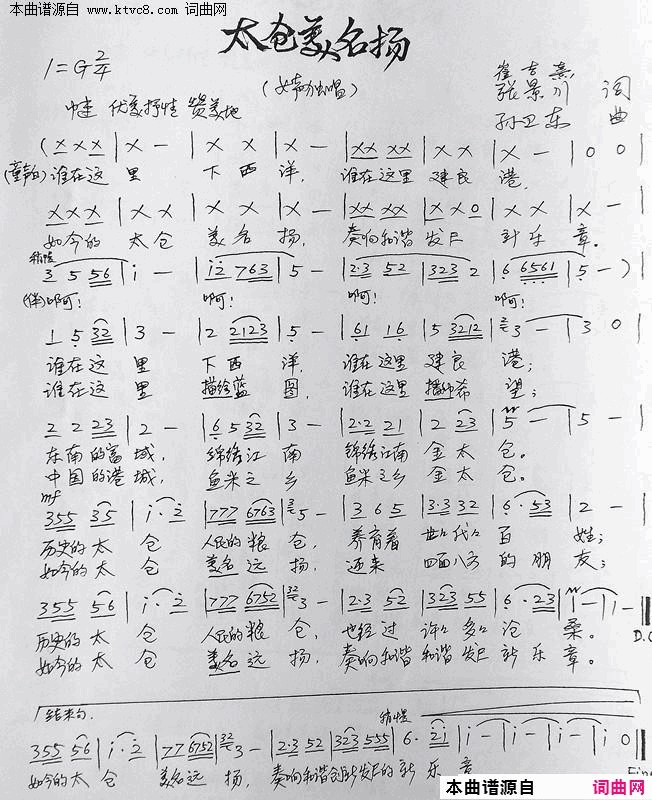 本曲谱源自 www.ktvc8.com 词曲网
太仓美名扬
1=G 2/4
(女声独唱)
中速 优美抒情 赞美地
张景川 词
孙卫东 曲
(X X X | X - | X X | X - | XX XX | X X | X - | 0 0 |
(童声白) 谁在这里 下西洋, 谁在这里建良港,
X X X | X X | X X | X - | XX XX | X X 0 | X X | X - |
如今的太仓美名扬, 奏响和谐发展新乐章。
稍慢
3 5 56 | i - | i2 763 | 5 - | 2·3 52 | 323 2 | 6 6561 | 5 - ) |
(伴)啊! 啊! 啊! 啊!
1 5 32 | 3 - | 2 2123 | 5 - | 61 16 | 5 3212 | 3 - | 3 0 |
谁在这里下西洋, 谁在这里建良港;
谁在这里描绘蓝图, 谁在这里播种希望;
2 2 23 | 2 - | 6 5 32 | 3 - | 2·2 21 | 2 23 | 5 - | 5 - |
东南的富城, 锦绣江南 锦绣江南金太仓。
中国的港城, 鱼米之乡 鱼米之乡金太仓。
mf
355 35 | i·2 | 777 6763 | 5 - | 3 6 5 | 3·3 32 | 6·53 | 2 - |
历史的太仓 人民的粮仓, 养育着世世代代百姓;
如今的太仓 美名远扬, 迎来四面八方的朋友;
355 56 | i·2 | 777 6752 | 3 - | 2·3 52 | 323 55 | 6·23 | i - | i - ‖
D.C
历史的太仓 人民的粮仓, 也经过许许多多沧桑。
如今的太仓 美名远扬, 奏响和谐和谐发展新乐章。
结束句.
稍慢
355 56 | i·2 | 77 6752 | 3 - | 2·3 52 | 323 555 | 6·2i | i - | i - | i - | i 0 ‖
如今的太仓 美名远扬, 奏响和谐创新发展的新乐章
Fine
本曲谱源自 词曲网